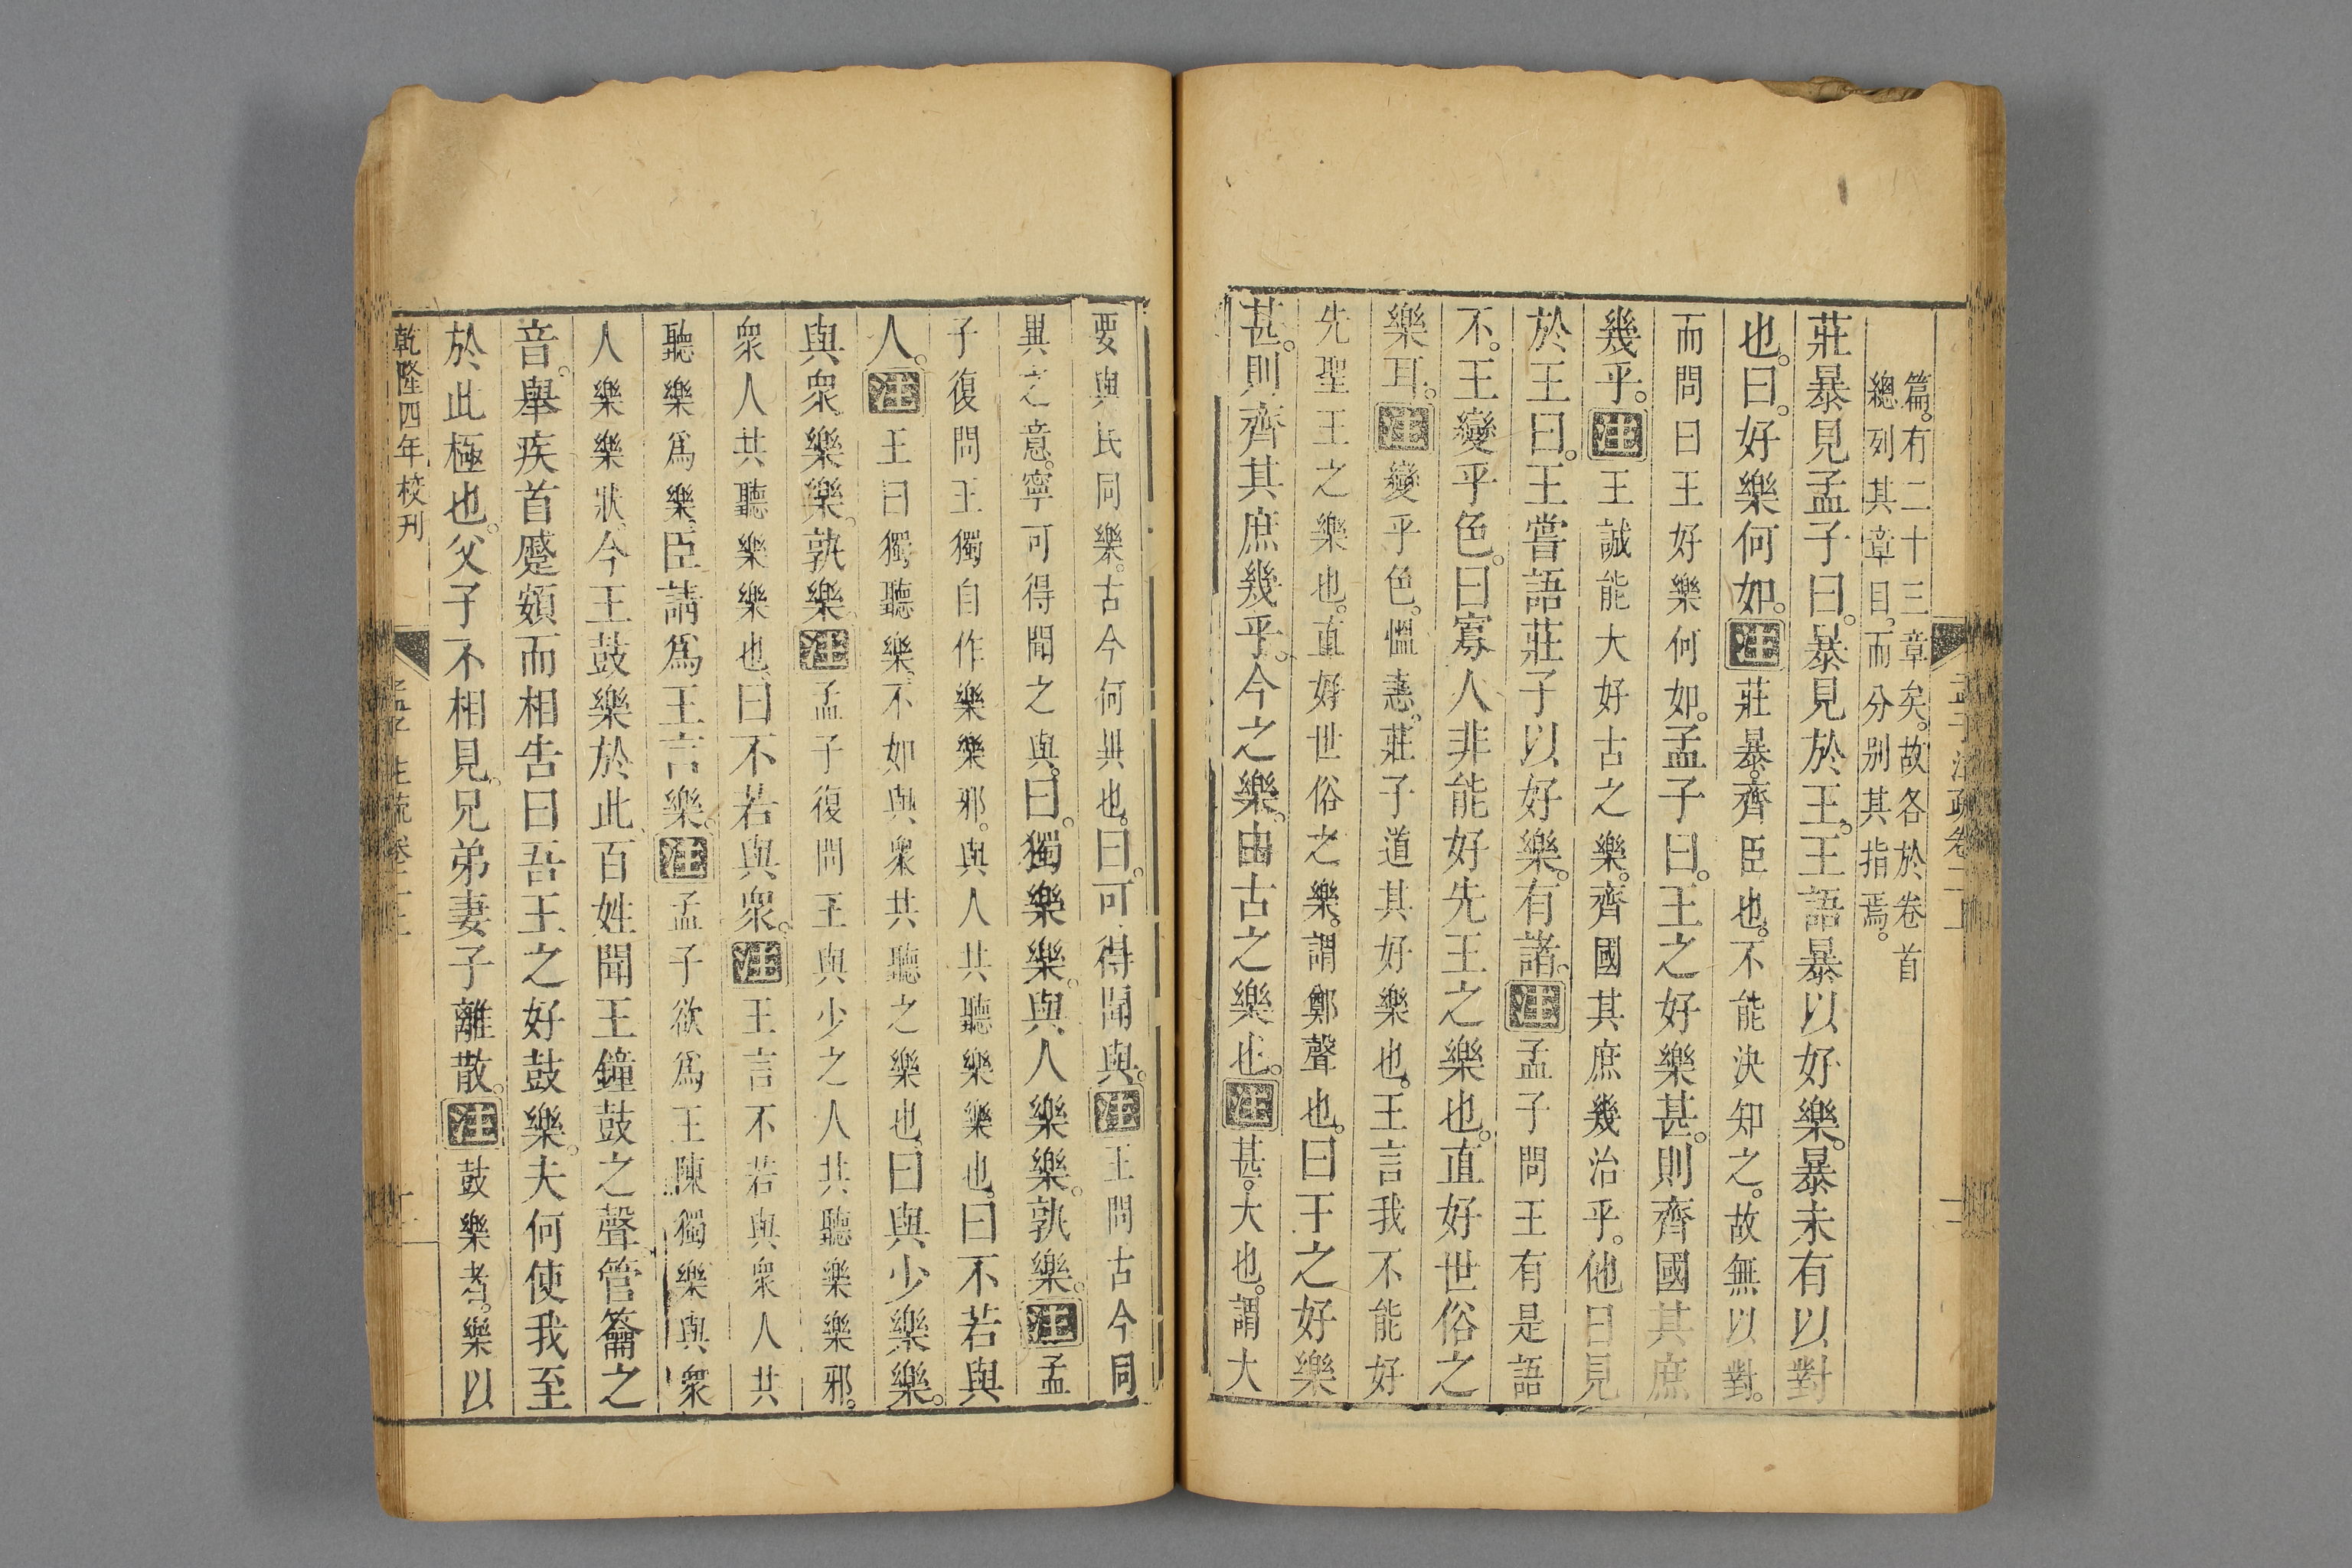 篇。有二十三章矣。故各於卷首
總列其章目。而分别其指焉。
莊暴見孟子曰。暴見於王。王語暴以好樂。暴未有以對
也。曰。好樂何如。注莊暴。齊臣也。不能決知之。故無以對。
而問曰王好樂何如。孟子曰。王之好樂甚。則齊國其庶
幾乎。注王誠能大好古之樂。齊國其庶幾治乎。他日見
於王曰。王嘗語莊子以好樂。有諸。注孟子問王有是語
不。王變乎色。曰寡人非能好先王之樂也。直好世俗之
樂耳。注變乎色。慍恚。莊子道其好樂也。王言我不能好
先聖王之樂也。直好世俗之樂。謂鄭聲也。曰王之好樂
甚。則齊其庶幾乎。今之樂。由古之樂也。注甚。大也。謂大
要與民同樂。古今何異也。曰。可得聞與。注王問古今同
異之意。寧可得聞之與。曰。獨樂樂。與人樂樂。孰樂。注孟
子復問王獨自作樂樂邪。與人共聽樂樂也。曰不若與
人。注王曰獨聽樂。不如與衆共聽之樂也。曰與少樂樂。
與衆樂樂。孰樂。注孟子復問王與少之人共聽樂樂邪。
衆人共聽樂樂也。曰不若與衆。注王言不若與衆人共
聽樂爲樂。臣請爲王言樂。注孟子欲爲王陳獨樂與衆
人樂樂狀。今王鼓樂於此。百姓聞王鐘鼓之聲管籥之
音。舉疾首蹙頞而相告曰吾王之好鼓樂。夫何使我至
於此極也。父子不相見。兄弟妻子離散。注鼓樂者。樂以
乾隆四年校刊
孟子注疏卷二上